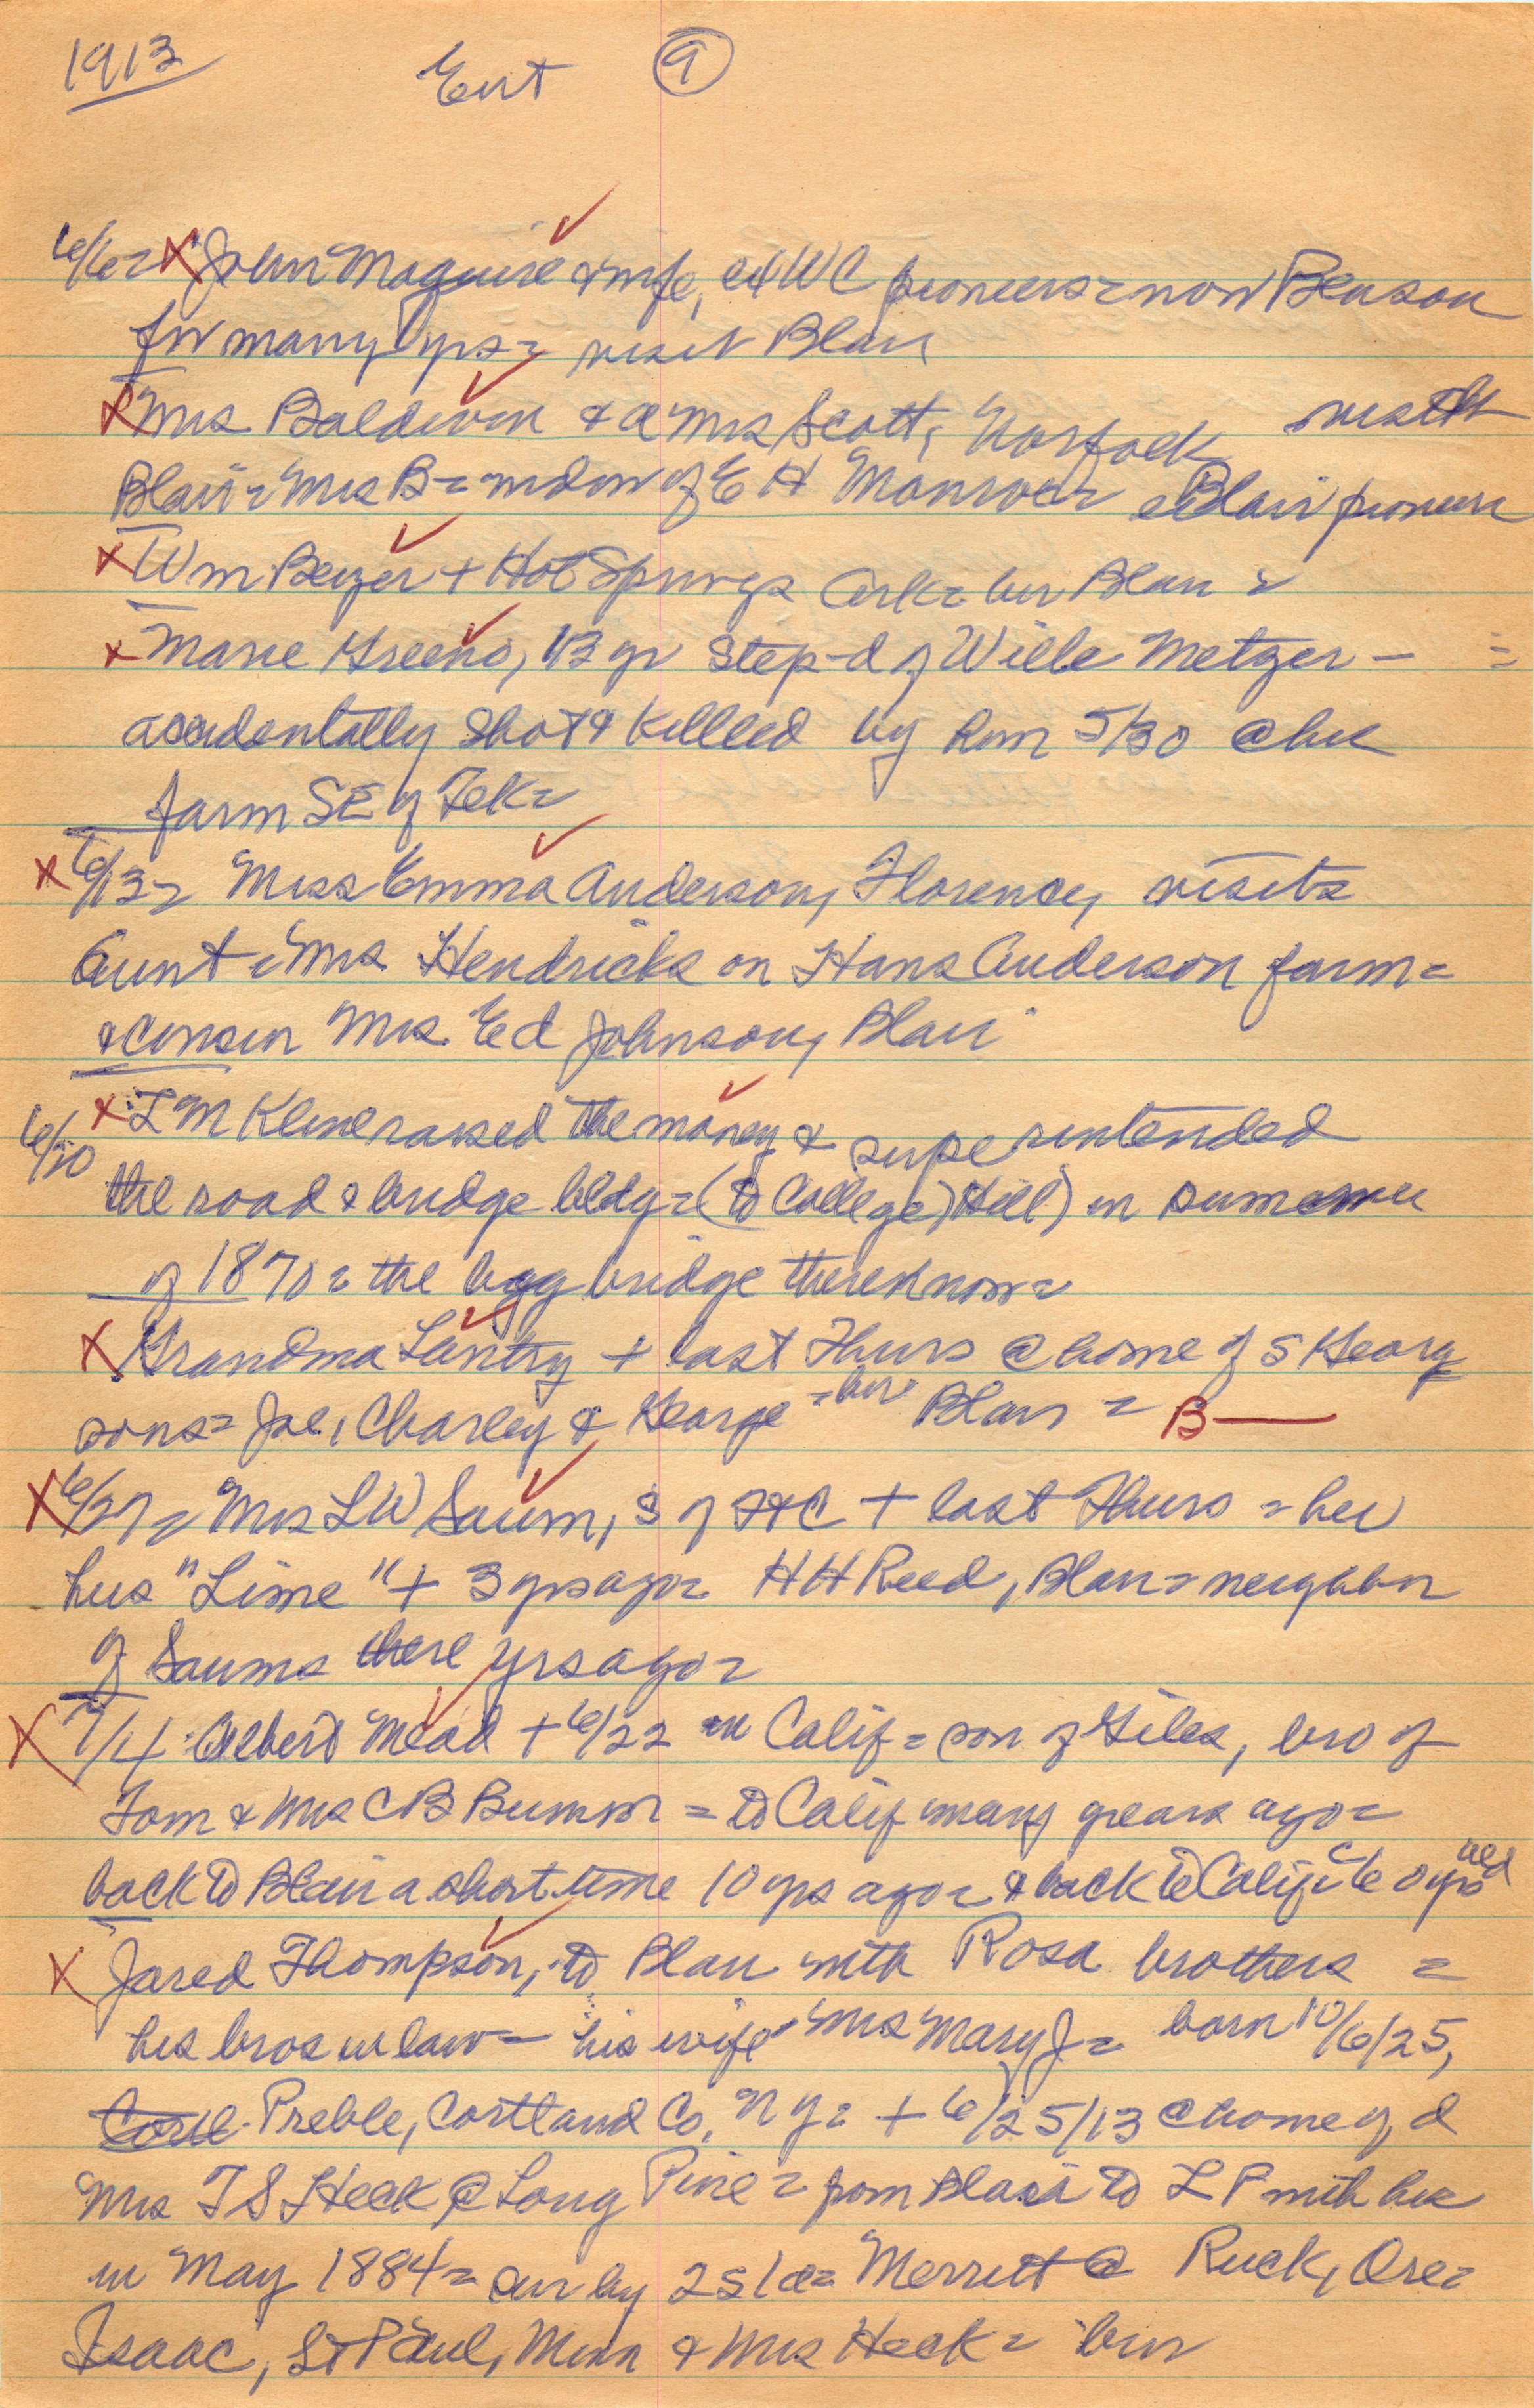 1913 Ent 9
6/6= X John Maguire & wife, WC pioneers = now Benson
for many yrs = visit Blair
X Mrs Baldwin & d Mrs Scott, Norfolk visit
Blair = Mrs B = widow of E H Monroe = Blair pioneer
X Wm Beyer + Hot Springs Ark = bur Blair =
X Marie Greeno, 13 yr step-d of Wille Metzger - =
accidentally shot & killed by him 5/30 @ his
farm SE of Tek=
X 6/13= Miss Emma Anderson, Florence, visits
Aunt = Mrs Hendricks on Hans Anderson farm =
& cousin Mrs Ed Johnson, Blair
6/20 X L M Kline raised the money & superintended
the road & bridge bldg = (to College Hill) in summer
of 1870 = the big bridge there now =
X Grandma Lantry + last Thurs @ home of s Georg
sons = Joe, Charley & George = bur Blair = B—
X 6/27 = Mrs L W Saum, S of Ft C + last Thurs = her
hus "Lime" + 3 yrs ago = H H Reed, Blair = neighbor
of Saums there yrs ago =
X 7/4 Albert Mead + 6/22 in Calif = son of Giles, bro of
Tom & Mrs C B = to Calif many years ago =
back to Blair a short time 10 yrs ago = & back to Calif = c 60 yrs old
X Jared Thompson, to Blair with Rosa brothers =
his bros in law = his wife Mrs Mary J = born 10/6/25,
Preble, Cortland Co, NY = + 6/25/13 @ home of d
Mrs T S Heck @ Long Pine = from Blair to L P with hus
in May 1884 = sur by 2s 1d = Merritt @ Ruck, Ore =
Isaac, St Paul, Minn & Mrs Heck = bur